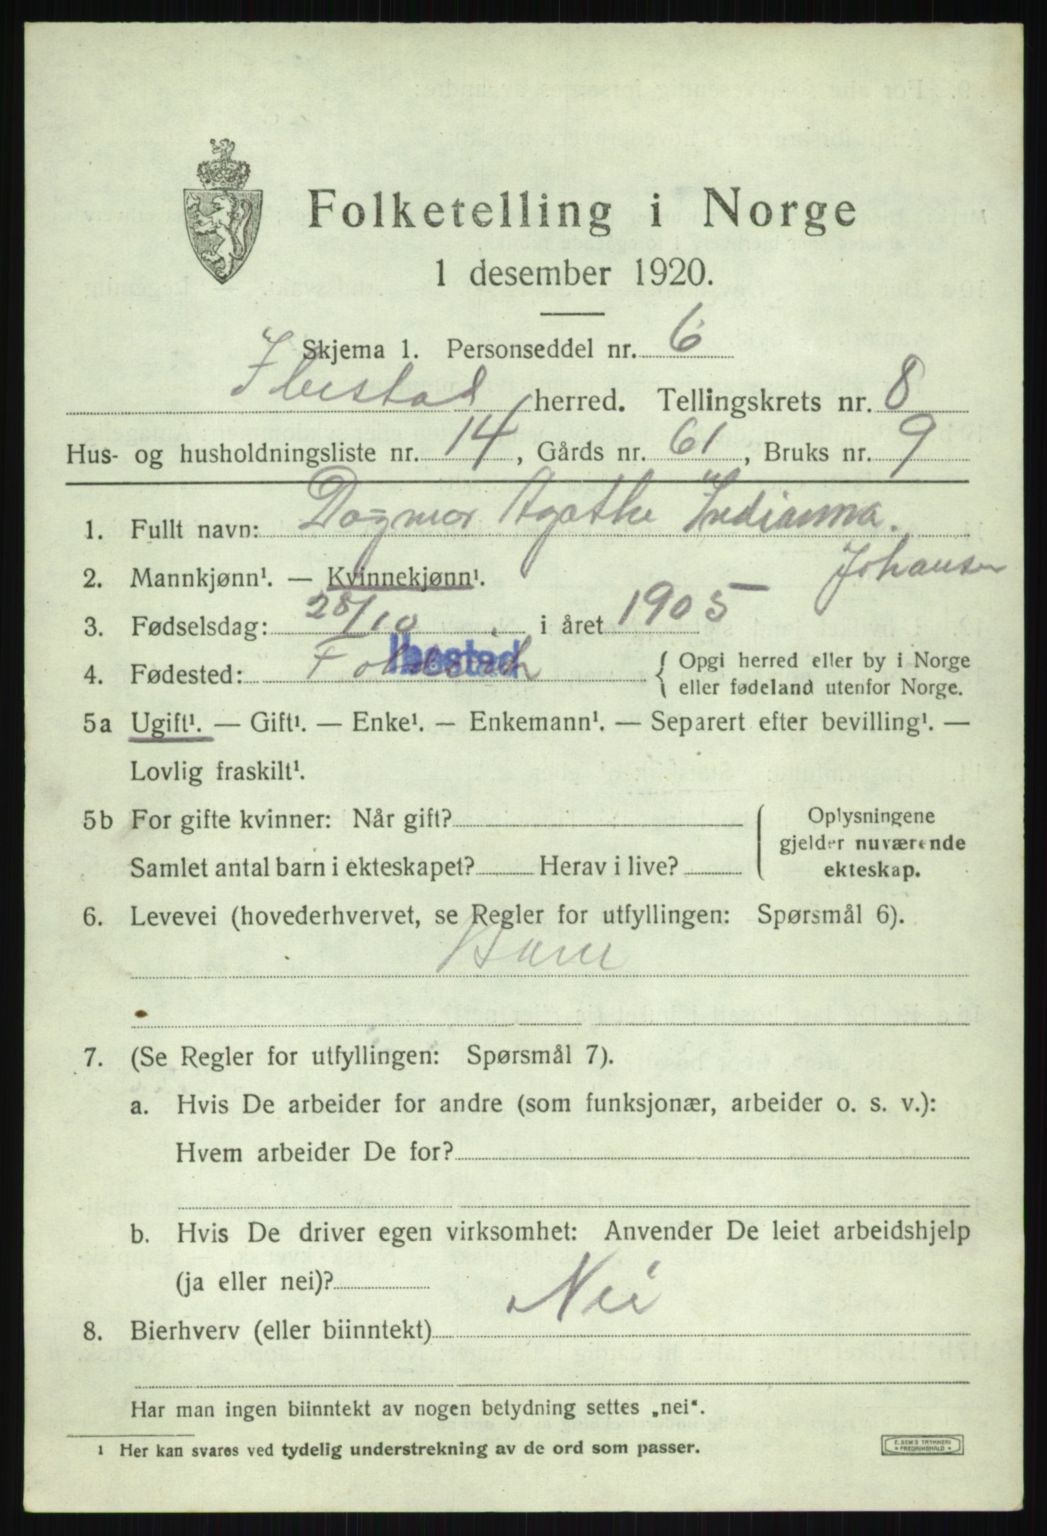 Folketelling i Norge
1 desember 1920.
Skjema 1. Personseddel nr. 6
Ibestad herred. Tellingskrets nr. 8
Hus- og husholdningsliste nr. 14, Gårds nr. 61, Bruks nr. 9
1. Fullt navn: Dagmar Agathe Indianna.
Johansen
2. Mannkjønn¹. — Kvinnekjønn¹.
3. Fødselsdag: 28/10 i året 1905
4. Fødested: Ibestad { Opgi herred eller by i Norge
eller fødeland utenfor Norge.
5a Ugift¹. — Gift¹. — Enke¹. — Enkemann¹. — Separert efter bevilling¹. —
Lovlig fraskilt¹.
5b For gifte kvinner: Når gift?
Samlet antal barn i ekteskapet? Herav i live?
Oplysningene
gjelder nuværende
ekteskap.
6. Levevei (hovederhvervet, se Regler for utfyllingen: Spørsmål 6).
Barn
7. (Se Regler for utfyllingen: Spørsmål 7).
a. Hvis De arbeider for andre (som funksjonær, arbeider o. s. v.):
Hvem arbeider De for?
b. Hvis De driver egen virksomhet: Anvender De leiet arbeidshjelp
(ja eller nei)?
8. Bierhverv (eller biinntekt) Nei
Har man ingen biinntekt av nogen betydning settes „nei“.
1 Her kan svares ved tydelig understrekning av de ord som passer.
E. SEM'S TRYKKERI
FREDRIKSHALD